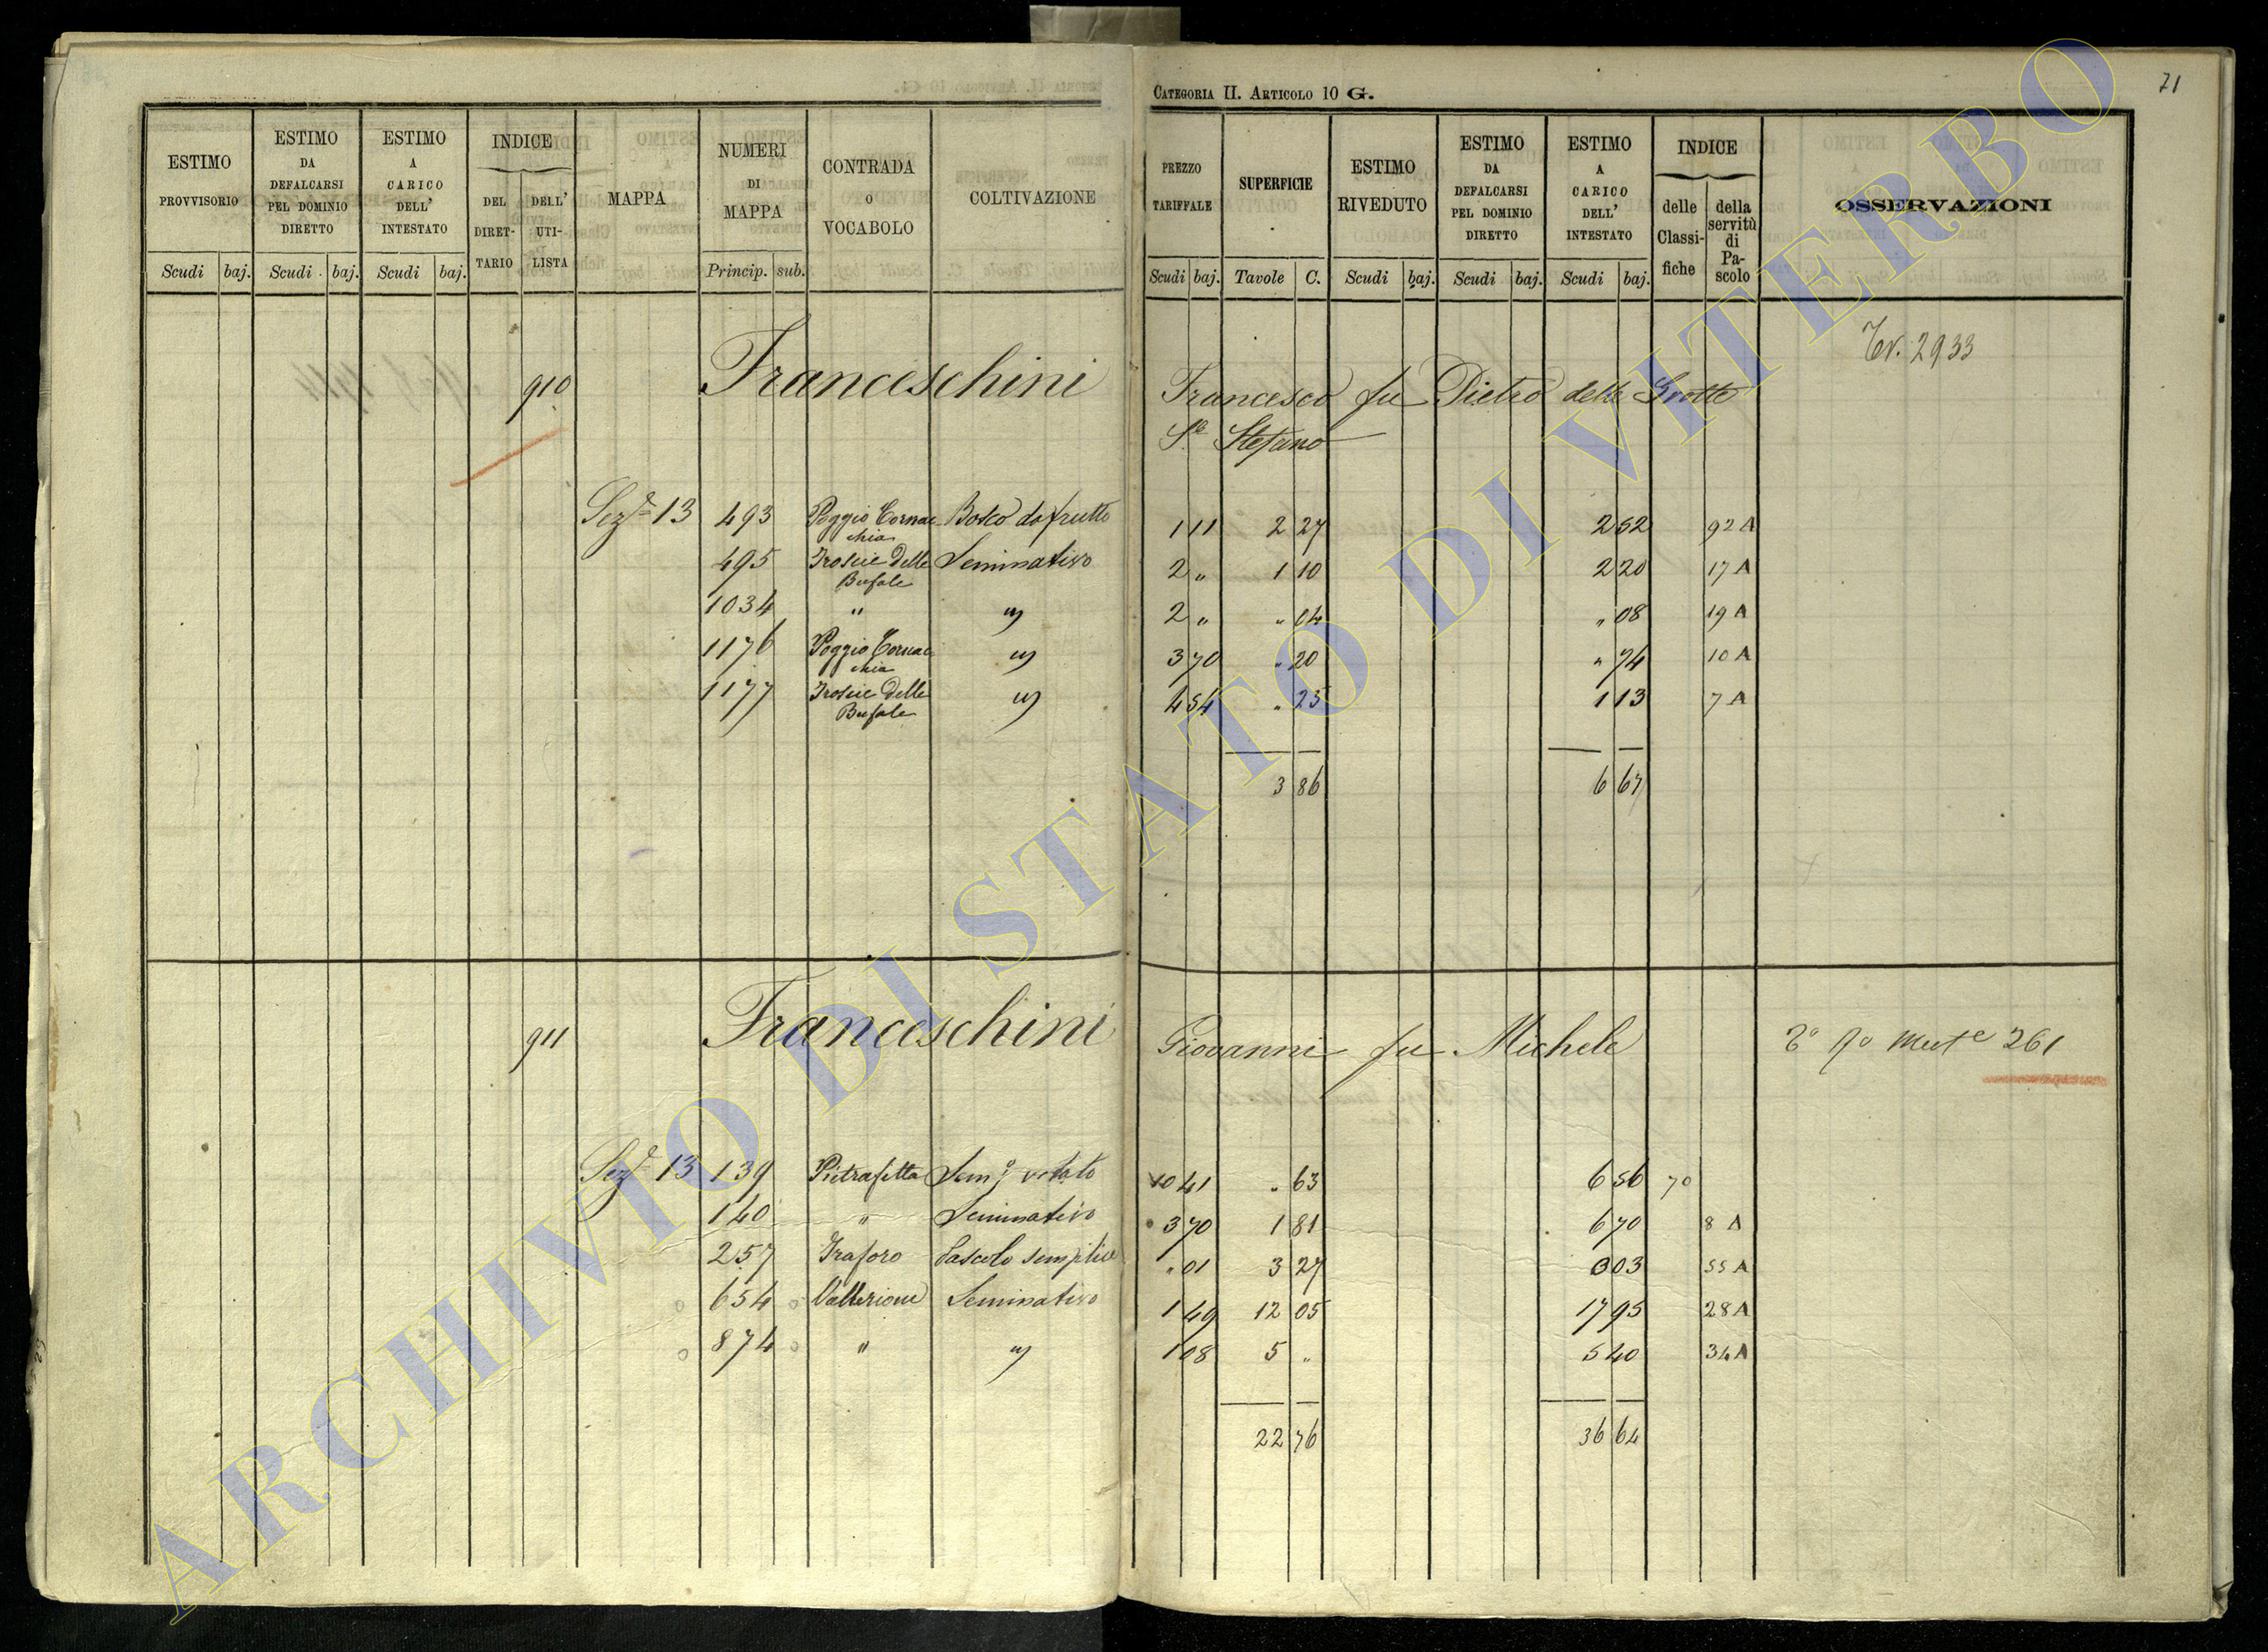 CATEGORIA II. ARTICOLO 10 G.
71
ESTIMO PROVVISORIO
ESTIMO DA DEFALCARSI PEL DOMINIO DIRETTO
ESTIMO A CARICO DELL' INTESTATO
INDICE
DEL DIRETTARIO
DELL' UTILISTA
MAPPA
NUMERI DI MAPPA
CONTRADA O VOCABOLO
COLTIVAZIONE
Scudi baj. Scudi baj. Scudi baj. Princip. sub.
PREZZO TARIFFALE
SUPERFICIE
ESTIMO RIVEDUTO
ESTIMO DA DEFALCARSI PEL DOMINIO DIRETTO
ESTIMO A CARICO DELL' INTESTATO
INDICE
delle Classifiche
della servitù di Pascolo
OSSERVAZIONI
Scudi baj. Tavole C. Scudi baj. Scudi baj. Scudi baj.
910 Franceschini Francesco fu Pietro delle Grotte
Sto Stefano
2933
Seze 13 493 Poggio Cornacchia Bosco da frutto 1 11 2 27 2 52 92 A
495 Troscie delle Bufale Seminativo 2 " 1 10 2 20 17 A
1034 " " 2 " " 04 " 08 19 A
1176 Poggio Cornacchia " 3 70 " 20 " 74 10 A
1177 Troscie delle Bufale " 4 54 " 25 1 13 7 A
3 86 6 67
911 Franceschini Giovanni fu Michele
261
Seze 13 139 Pietrafitta Semo vitato 10 41 " 63 6 56 70
140 " Seminativo 3 70 1 81 6 70 8 A
257 Traforo Pascolo semplice " 01 3 27 0 03 55 A
654 Vallerione Seminativo 1 49 12 05 17 95 28 A
874 " " 1 08 5 " 5 40 34 A
22 76 36 64
ARCHIVIO DI STATO DI VITERBO